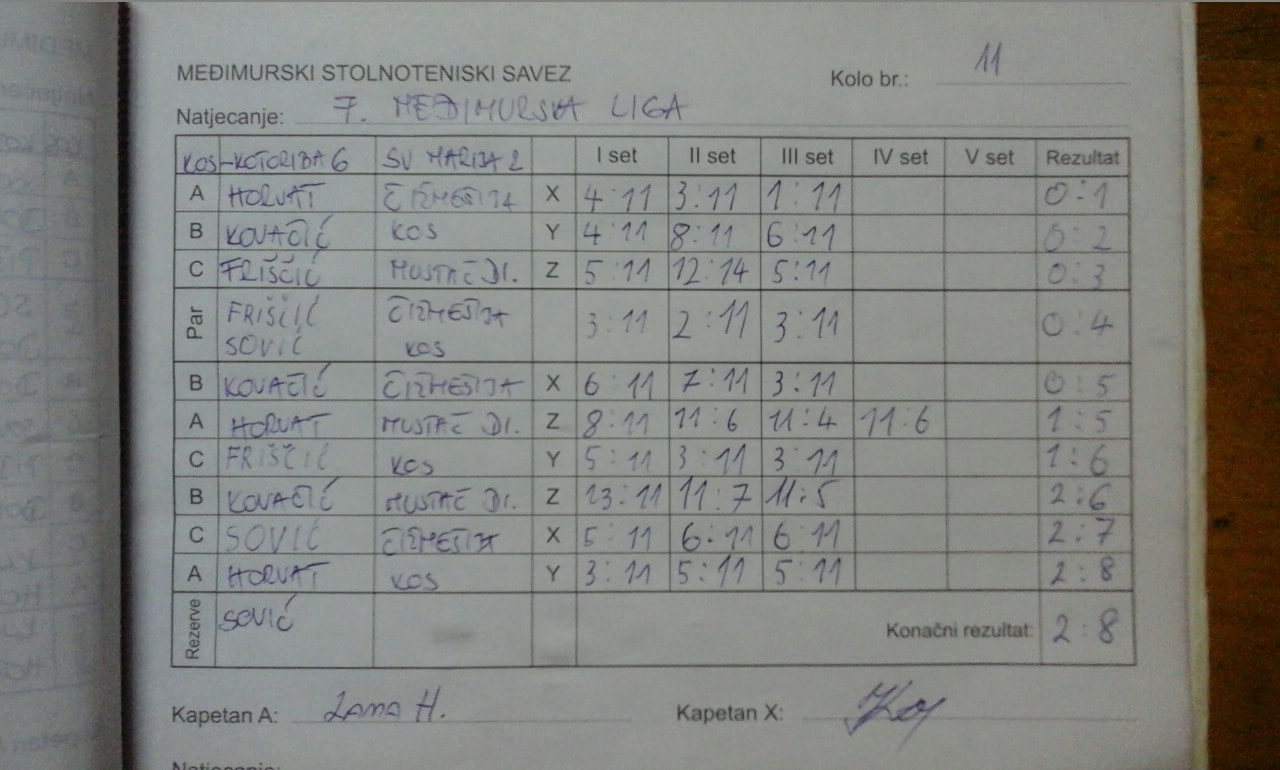 MEĐIMURSKI STOLNOTENISKI SAVEZ Kolo br.: 11
Natjecanje: 7. MEĐIMURSKA LIGA
KOS-KOTORIBA 6 SV MARIJA 2 I set II set III set IV set V set Rezultat
A HORVAT ČIZMEŠIJA X 4:11 3:11 1:11 0:1
B KOVAČIĆ KOS Y 4:11 8:11 6:11 0:2
C FRIŠČIĆ MUSTAČ DI. Z 5:11 12:14 5:11 0:3
Par FRIŠČIĆ SOVIĆ ČIZMEŠIJA KOS 3:11 2:11 3:11 0:4
B KOVAČIĆ ČIZMEŠIJA X 6:11 7:11 3:11 0:5
A HORVAT MUSTAČ DI. Z 8:11 11:6 11:4 11:6 1:5
C FRIŠČIĆ KOS Y 5:11 3:11 3:11 1:6
B KOVAČIĆ MUSTAČ DI. Z 13:11 11:7 11:5 2:6
C SOVIĆ ČIZMEŠIJA X 5:11 6:11 6:11 2:7
A HORVAT KOS Y 3:11 5:11 5:11 2:8
Rezerve SOVIĆ Konačni rezultat: 2:8
Kapetan A: Lana H. Kapetan X: Kos
Natjecanje: